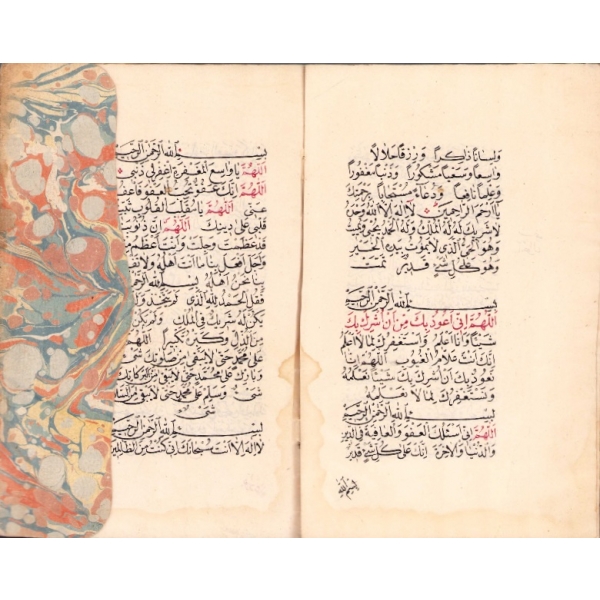 ولسانا ذاكرا ورزقا حلالا
واسعا وسعيا شكورا وذنبا مغفورا
وعلما نافعا ودعاء مستجابا برحمتك
يا ارحم الراحمين لا اله الا الله وحده
لا شريك له له الملك وله الحمد يحيي ويميت
وهو الحي الذي لا يموت بيده الخير
وهو على كل شيء قدير تمت
بسم الله الرحمن الرحيم
اللهم اني اعوذ بك من ان اشرك بك
شيئا وانا اعلم واستغفرك لما لا اعلم
انك انت علام الغيوب اللهم انا
نعوذ بك ان نشرك بك شيئا نعلمه
ونستغفرك لما لا نعلمه
بسم الله الرحمن الرحيم
اللهم اني اسئلك العفو والعافية في الدين
والدنيا والاخرة انك على كل شيء قدير
بسم الله
بسم الله الرحمن الرحيم
اللهم يا واسع المغفرة اغفر لي ذنبي
اللهم انك عفو تحب العفو فاعف
عني اللهم يا مقلب القلوب ثبت
قلبي على دينك اللهم ان ذنوبي
قد عظمت وجلت وانت اعظم منها
واجل افعل بنا ما انت اهله ولا تفعل
بنا نحن اهله بسم الله الرحمن الرحيم
وقل الحمد لله الذي لم يتخذ ولدا
يكن له شريك في الملك ولم يكن
من الذل وكبره تكبيرا اللهم
على محمد حتى لا يبقى من صلوتك شيء
وبارك على محمد حتى لا يبقى من البركات
شيء وسلم على محمد حتى لا يبقى من السلام
شيء
بسم الله الرحمن الرحيم
لا اله الا انت سبحانك اني كنت من الظالمين